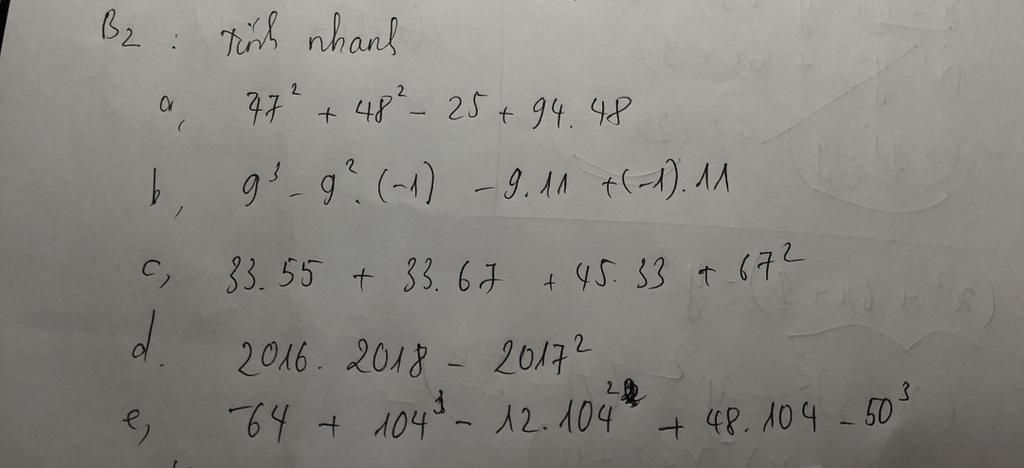 B2 : Tính nhanh
a, 47² + 48² - 25 + 94.48
b, 9³ - 9².(-1) - 9.11 +(-1).11
c, 33.55 + 33.67 + 45.33 + 67²
d. 2016. 2018 - 2017²
e, -64 + 104³ - 12.104² + 48.104 - 50³